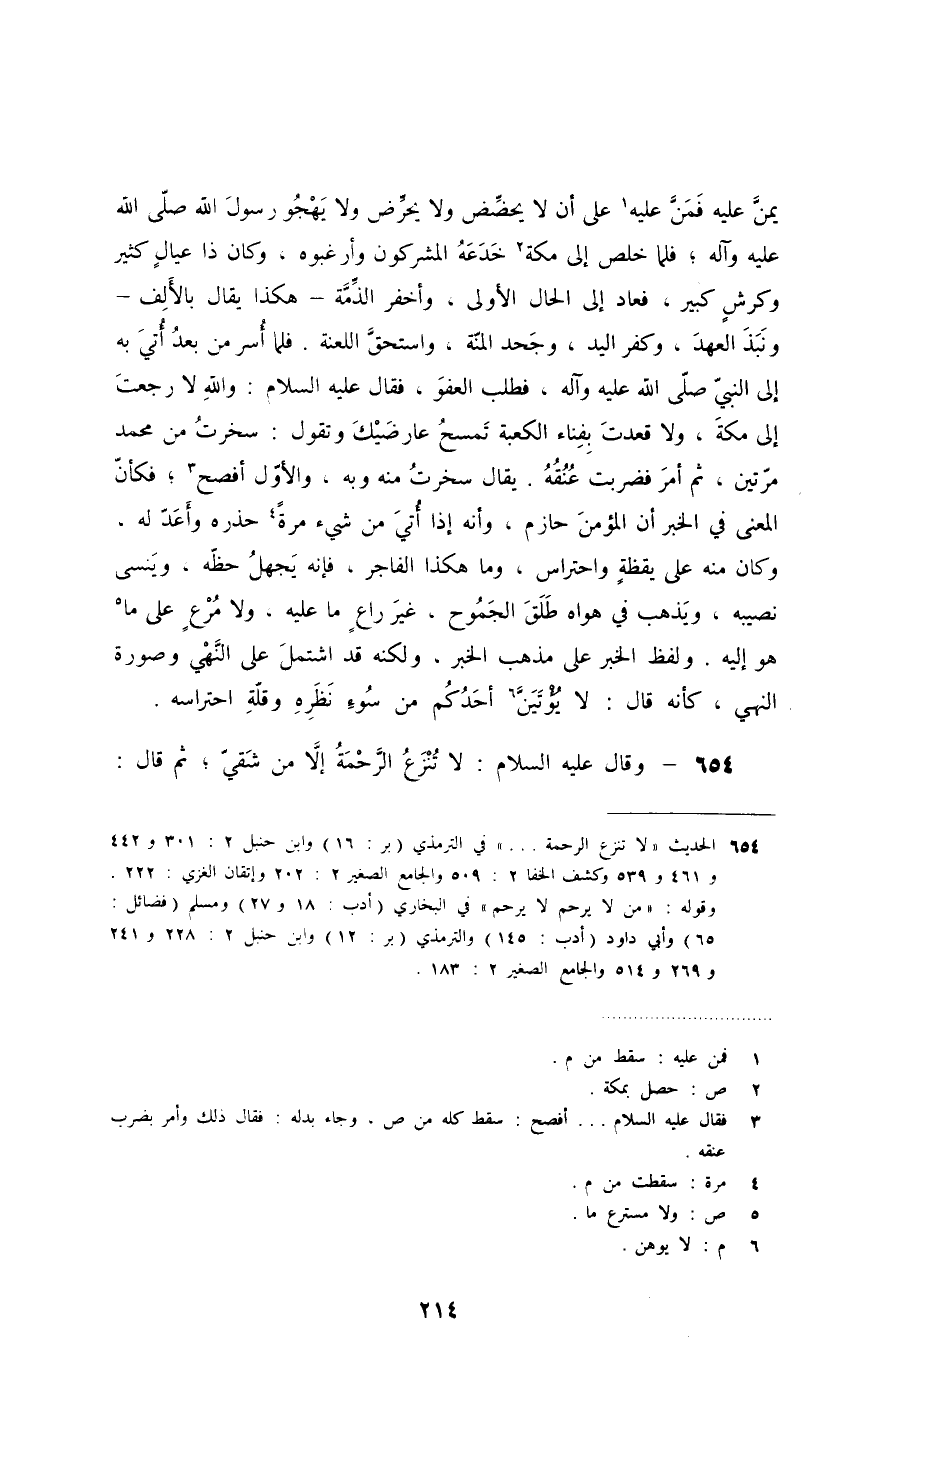 يمنَّ عليه فَمَنَّ عليه١ على أن لا يحضِّض ولا يحرِّض ولا يَهْجُو رسولَ الله صلّى الله
عليه وآله ؛ فلما خلص إلى مكة٢ خَدَعَهُ المشركون وأرغبوه ، وكان ذا عيالٍ كثير
وكرشٍ كبير ، فعاد إلى الحال الأولى ، وأخفر الذِّمَّة – هكذا يقال بالأَلِف –
ونَبَذَ العهدَ ، وكفر اليد ، وجَحد المنّة ، واستحقَّ اللعنة . فلما أُسر من بعدُ أُتيَ به
إلى النبيّ صلّى الله عليه وآله ، فطلب العفوَ ، فقال عليه السلام : واللهِ لا رجعتَ
إلى مكةَ ، ولا قعدتَ بِفِناء الكعبة تَمسحُ عارضَيْكَ وتقول : سخرتُ من محمد
مرّتين ، ثم أمرَ فضربت عُنُقُهُ . يقال سخرتُ منه وبه ، والأوّل أفصح٣ ؛ فكأنّ
المعنى في الخبر أن المؤمنَ حازم ، وأنه إذا أُتيَ من شيء مرةً٤ حذره وأَعَدّ له .
وكان منه على يقظةٍ واحتراس ، وما هكذا الفاجر ، فإنه يَجهلُ حظّه ، ويَنسى
نصيبه ، ويَذهب في هواه طَلَقَ الجَمُوح ، غيرَ راعٍ ما عليه ، ولا مُرْعٍ على ما٥
هو إليه . ولفظ الخبر على مذهب الخبر ، ولكنه قد اشتملَ على النَّهْي وصورة
النهي ، كأنه قال : لا يُؤْتَيَنَّ٦ أحَدُكُم من سُوءِ نَظَرِهِ وقلّةِ احتراسه .
٦٥٤ – وقال عليه السلام : لا تُنْزَعُ الرَّحْمَةُ إلَّا من شَقيّ ؛ ثم قال :
٦٥٤ الحديث «لا تنزع الرحمة ...» في الترمذي (بر : ١٦) وابن حنبل ٢ : ٣٠١ و ٤٤٢
و ٤٦١ و ٥٣٩ وكشف الخفا ٢ : ٥٠٩ والجامع الصغير ٢ : ٢٠٢ وإتقان الغزي : ٢٢٢ .
وقوله : «من لا يرحم لا يرحم» في البخاري (أدب : ١٨ و ٢٧) ومسلم (فضائل :
٦٥) وأبي داود (أدب : ١٤٥) والترمذي (بر : ١٢) وابن حنبل ٢ : ٢٢٨ و ٢٤١
و ٢٦٩ و ٥١٤ والجامع الصغير ٢ : ١٨٣ .
١ فمن عليه : سقط من م .
٢ ص : حصل بمكة .
٣ فقال عليه السلام ... أفصح : سقط كله من ص ، وجاء بدله : فقال ذلك وأمر بضرب
عنقه .
٤ مرة : سقطت من م .
٥ ص : ولا مسترع ما .
٦ م : لا يوهن .
٢١٤